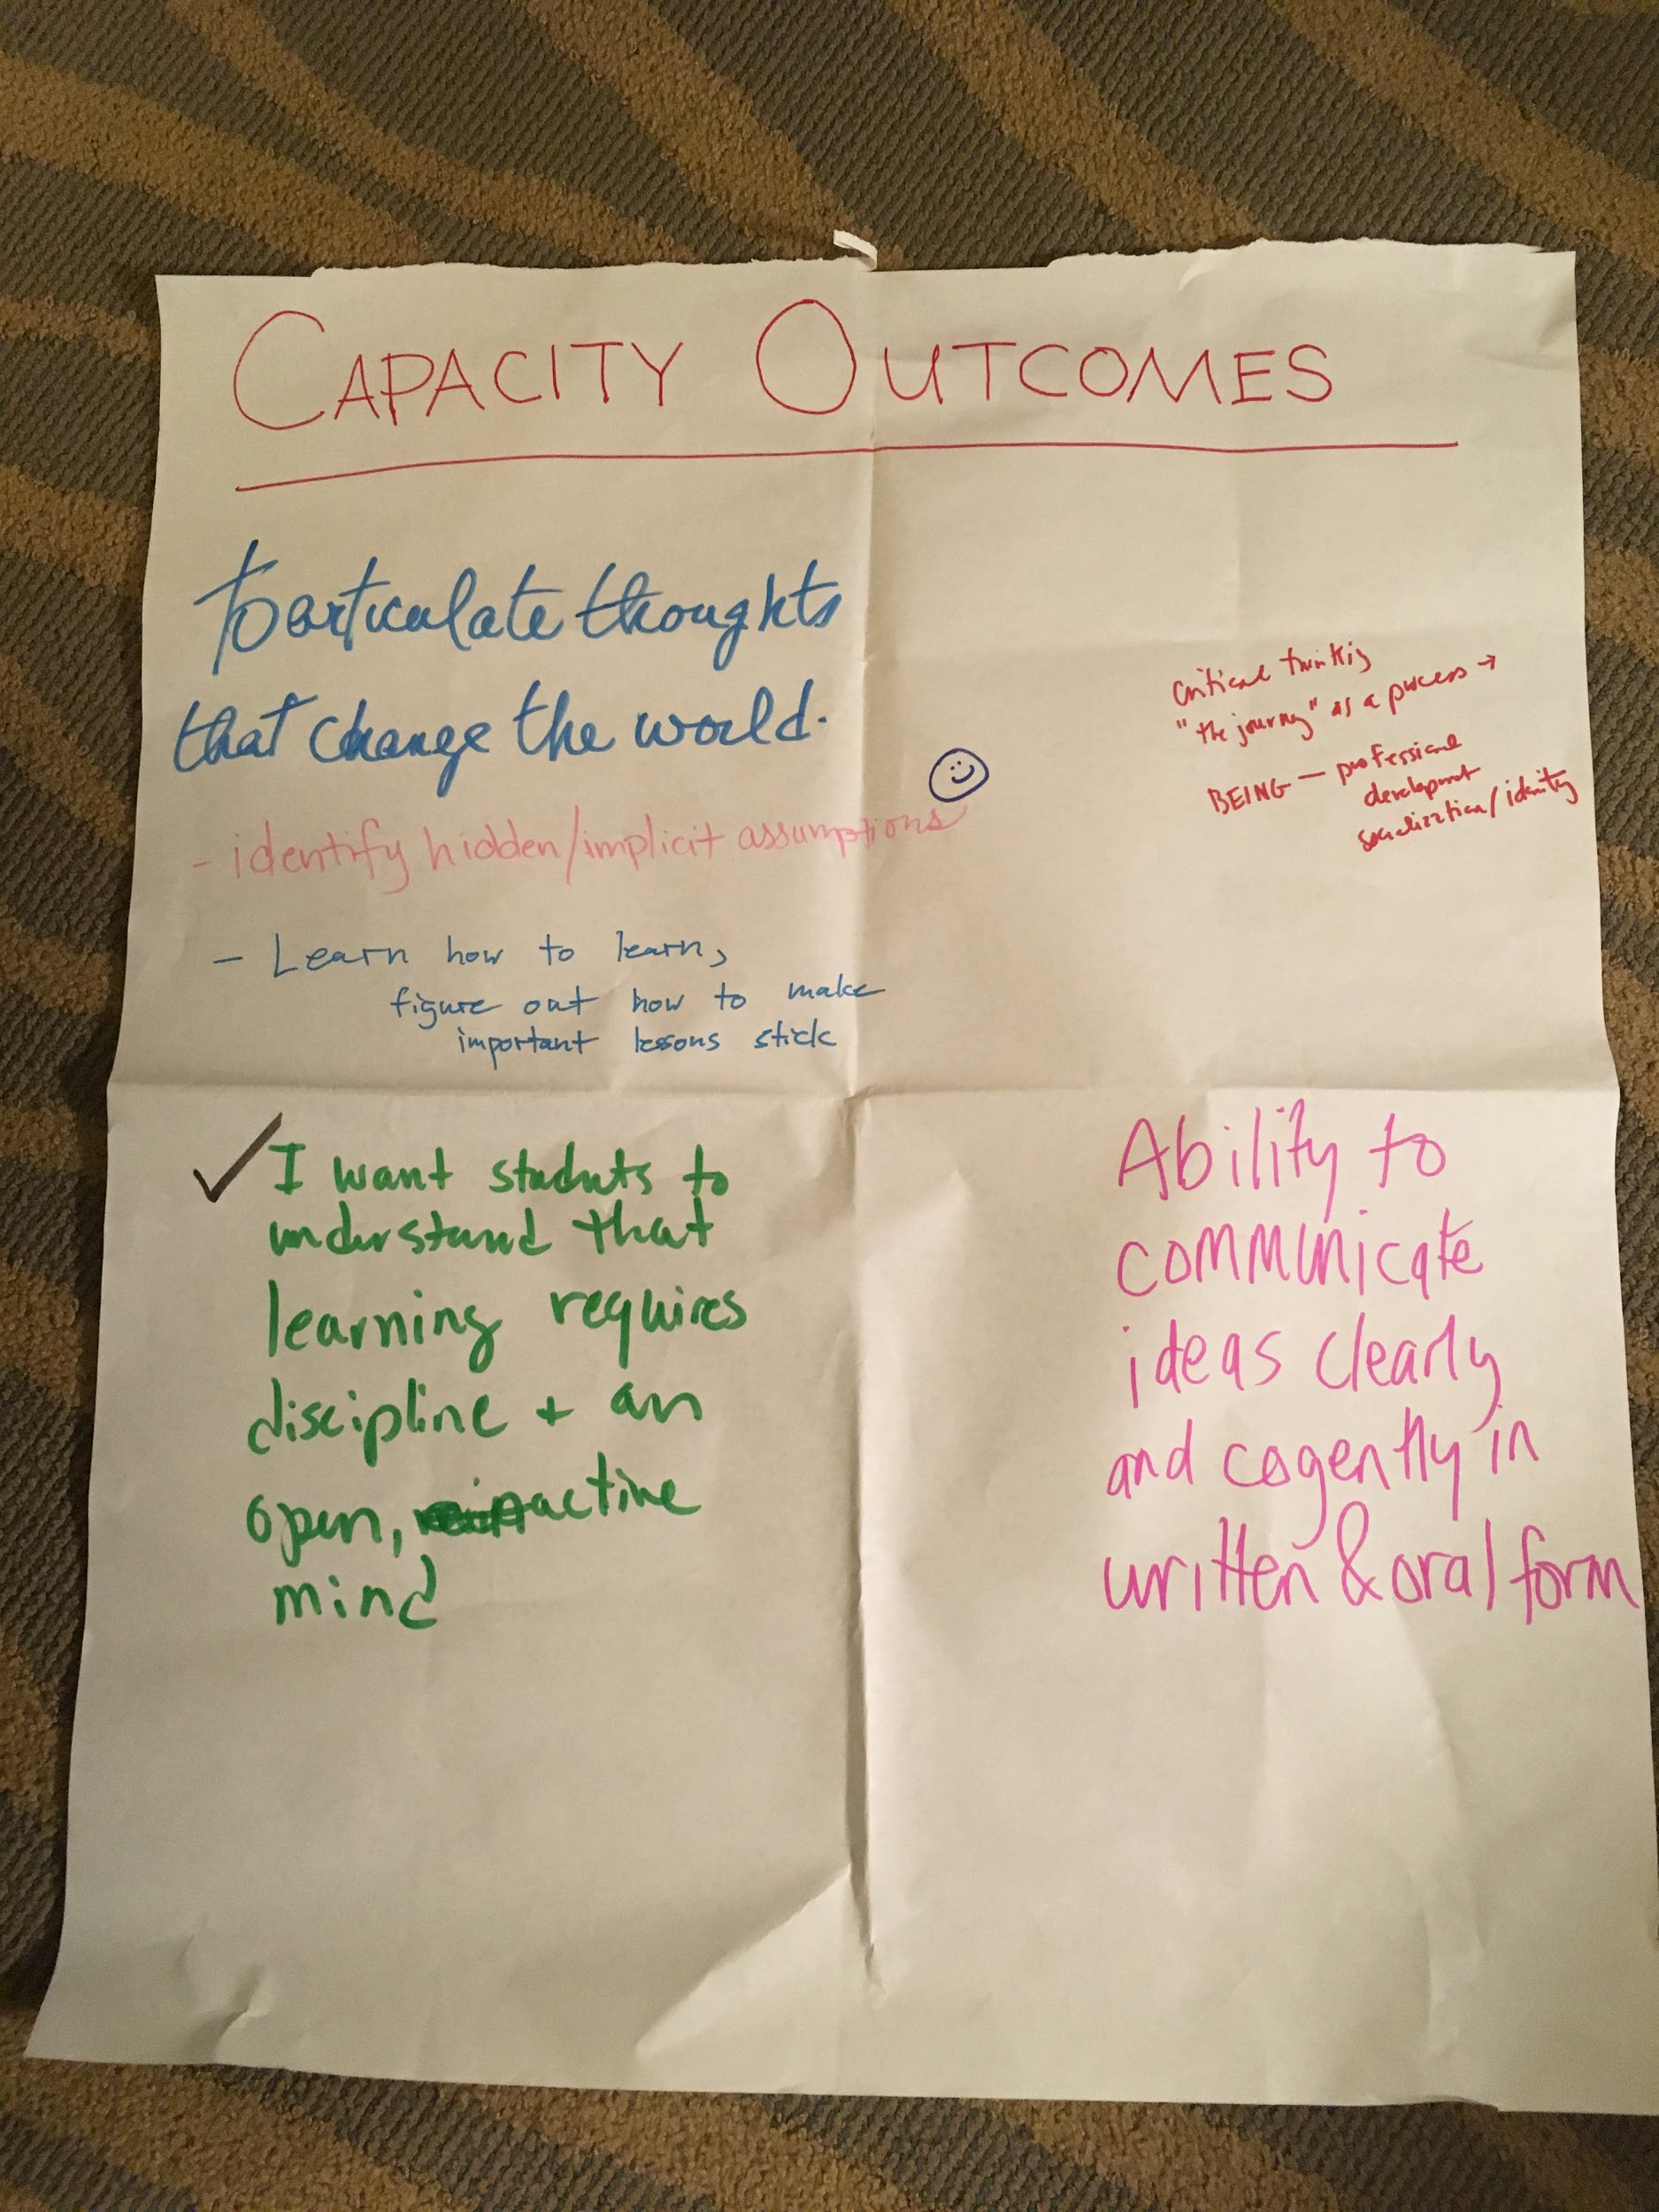 CAPACITY OUTCOMES
To articulate thoughts
that change the world.
- identify hidden/implicit assumptions
- Learn how to learn,
figure out how to make
important lessons stick
Critical thinking
"the journey" as a process →
BEING — professional
development
socialization/identity
✓ I want students to
understand that
learning requires
discipline + an
open, active
mind
Ability to
communicate
ideas clearly
and cogently in
written & oral form